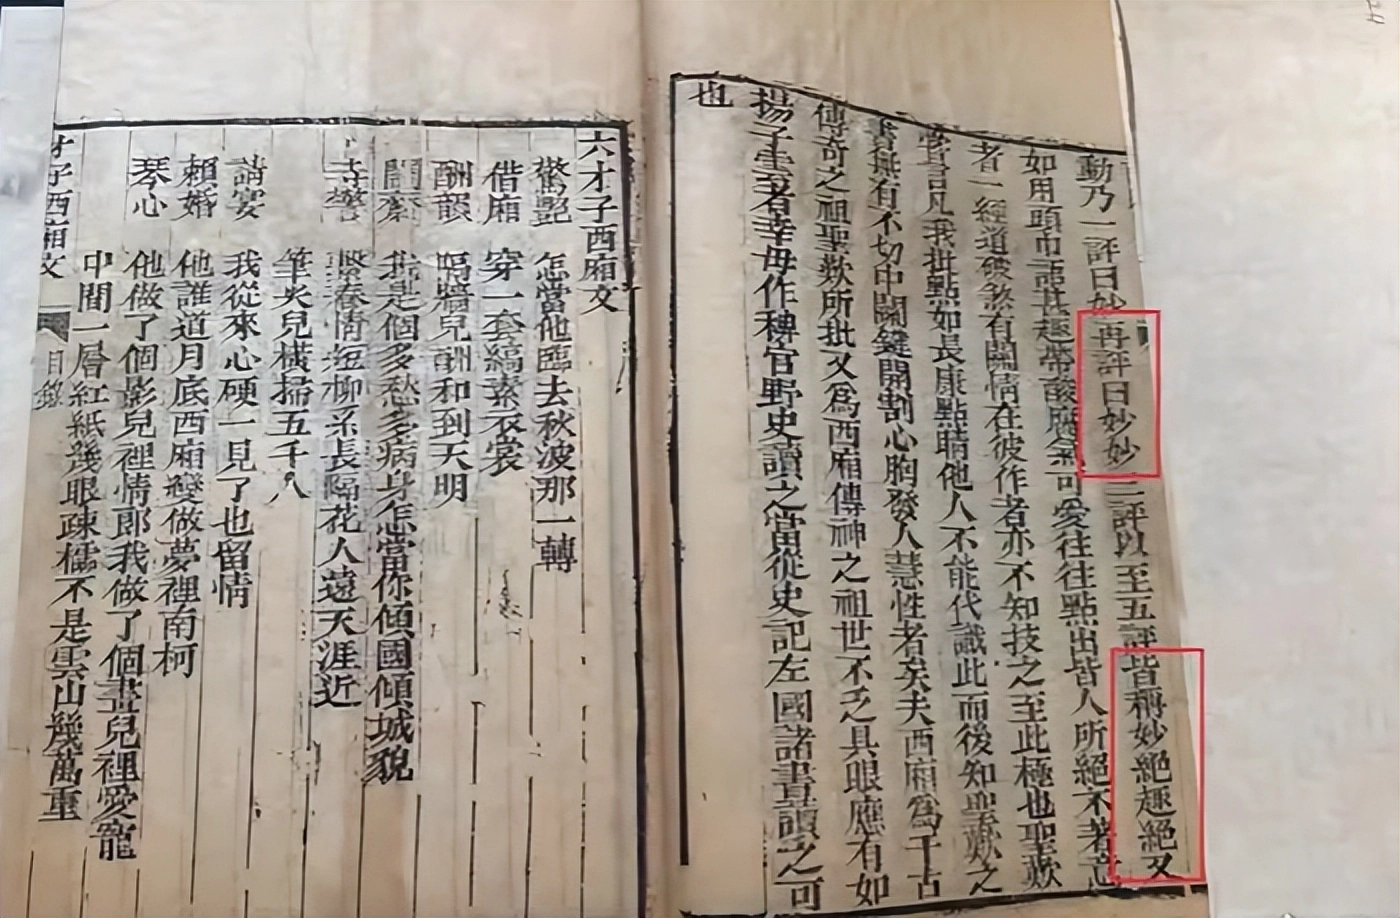 動乃一評曰妙再評曰妙妙三評以至五評皆稱妙絕趣絕又
如用頭巾語甚趣帶酸腐氣可愛往往點出皆人所絕不著意
者一經道破煞有關情在彼作者亦不知技之至此極也聖歎
嘗言凡我批點如長康點睛他人不能代識此而後知聖歎之
書無有不切中關鍵開割心胸發人慧性者矣夫西廂為千古
傳奇之祖聖歎所批又為西廂傳神之祖世不乏具眼應有如
揚子雲者幸毋作稗官野史讀之當從史記左國諸書讀之可
也
六才子西廂文
驚艷 怎當他臨去秋波那一轉
借廂 穿一套縞素衣裳
酬韻 隔牆兒酬和到天明
鬧齋 我是個多愁多病身怎當你傾國傾城貌
寺警 繫春情短柳系長隔花人遠天涯近
筆尖兒橫掃五千人
請宴 我從來心硬一見了也留情
賴婚 他誰道月底西廂變做夢裡南柯
琴心 他做了個影兒裡情郎我做了個畫兒裡愛寵
中間一層紅紙幾眼疎櫺不是雲山幾萬重
才子西廂文 目錄